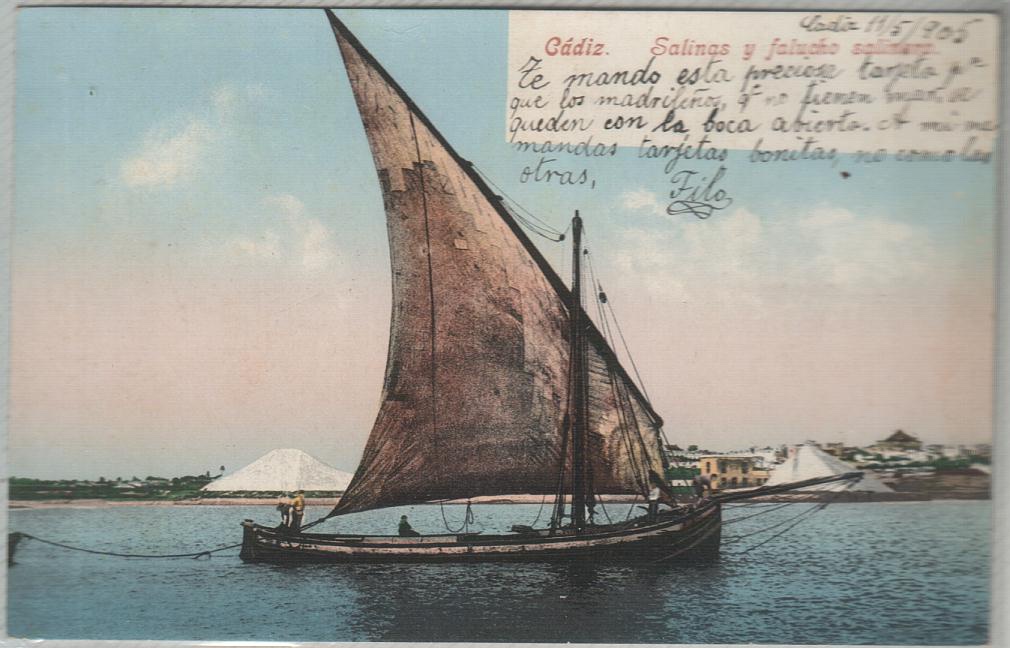 Cadiz 11/5/905
Cádiz. Salinas y falucho salinero.
Te mando esta preciosa tarjeta pª
que los madrileños, qº no tienen mar, se
queden con la boca abierta. A mi me
mandas tarjetas bonitas, no como las
otras,
Filo